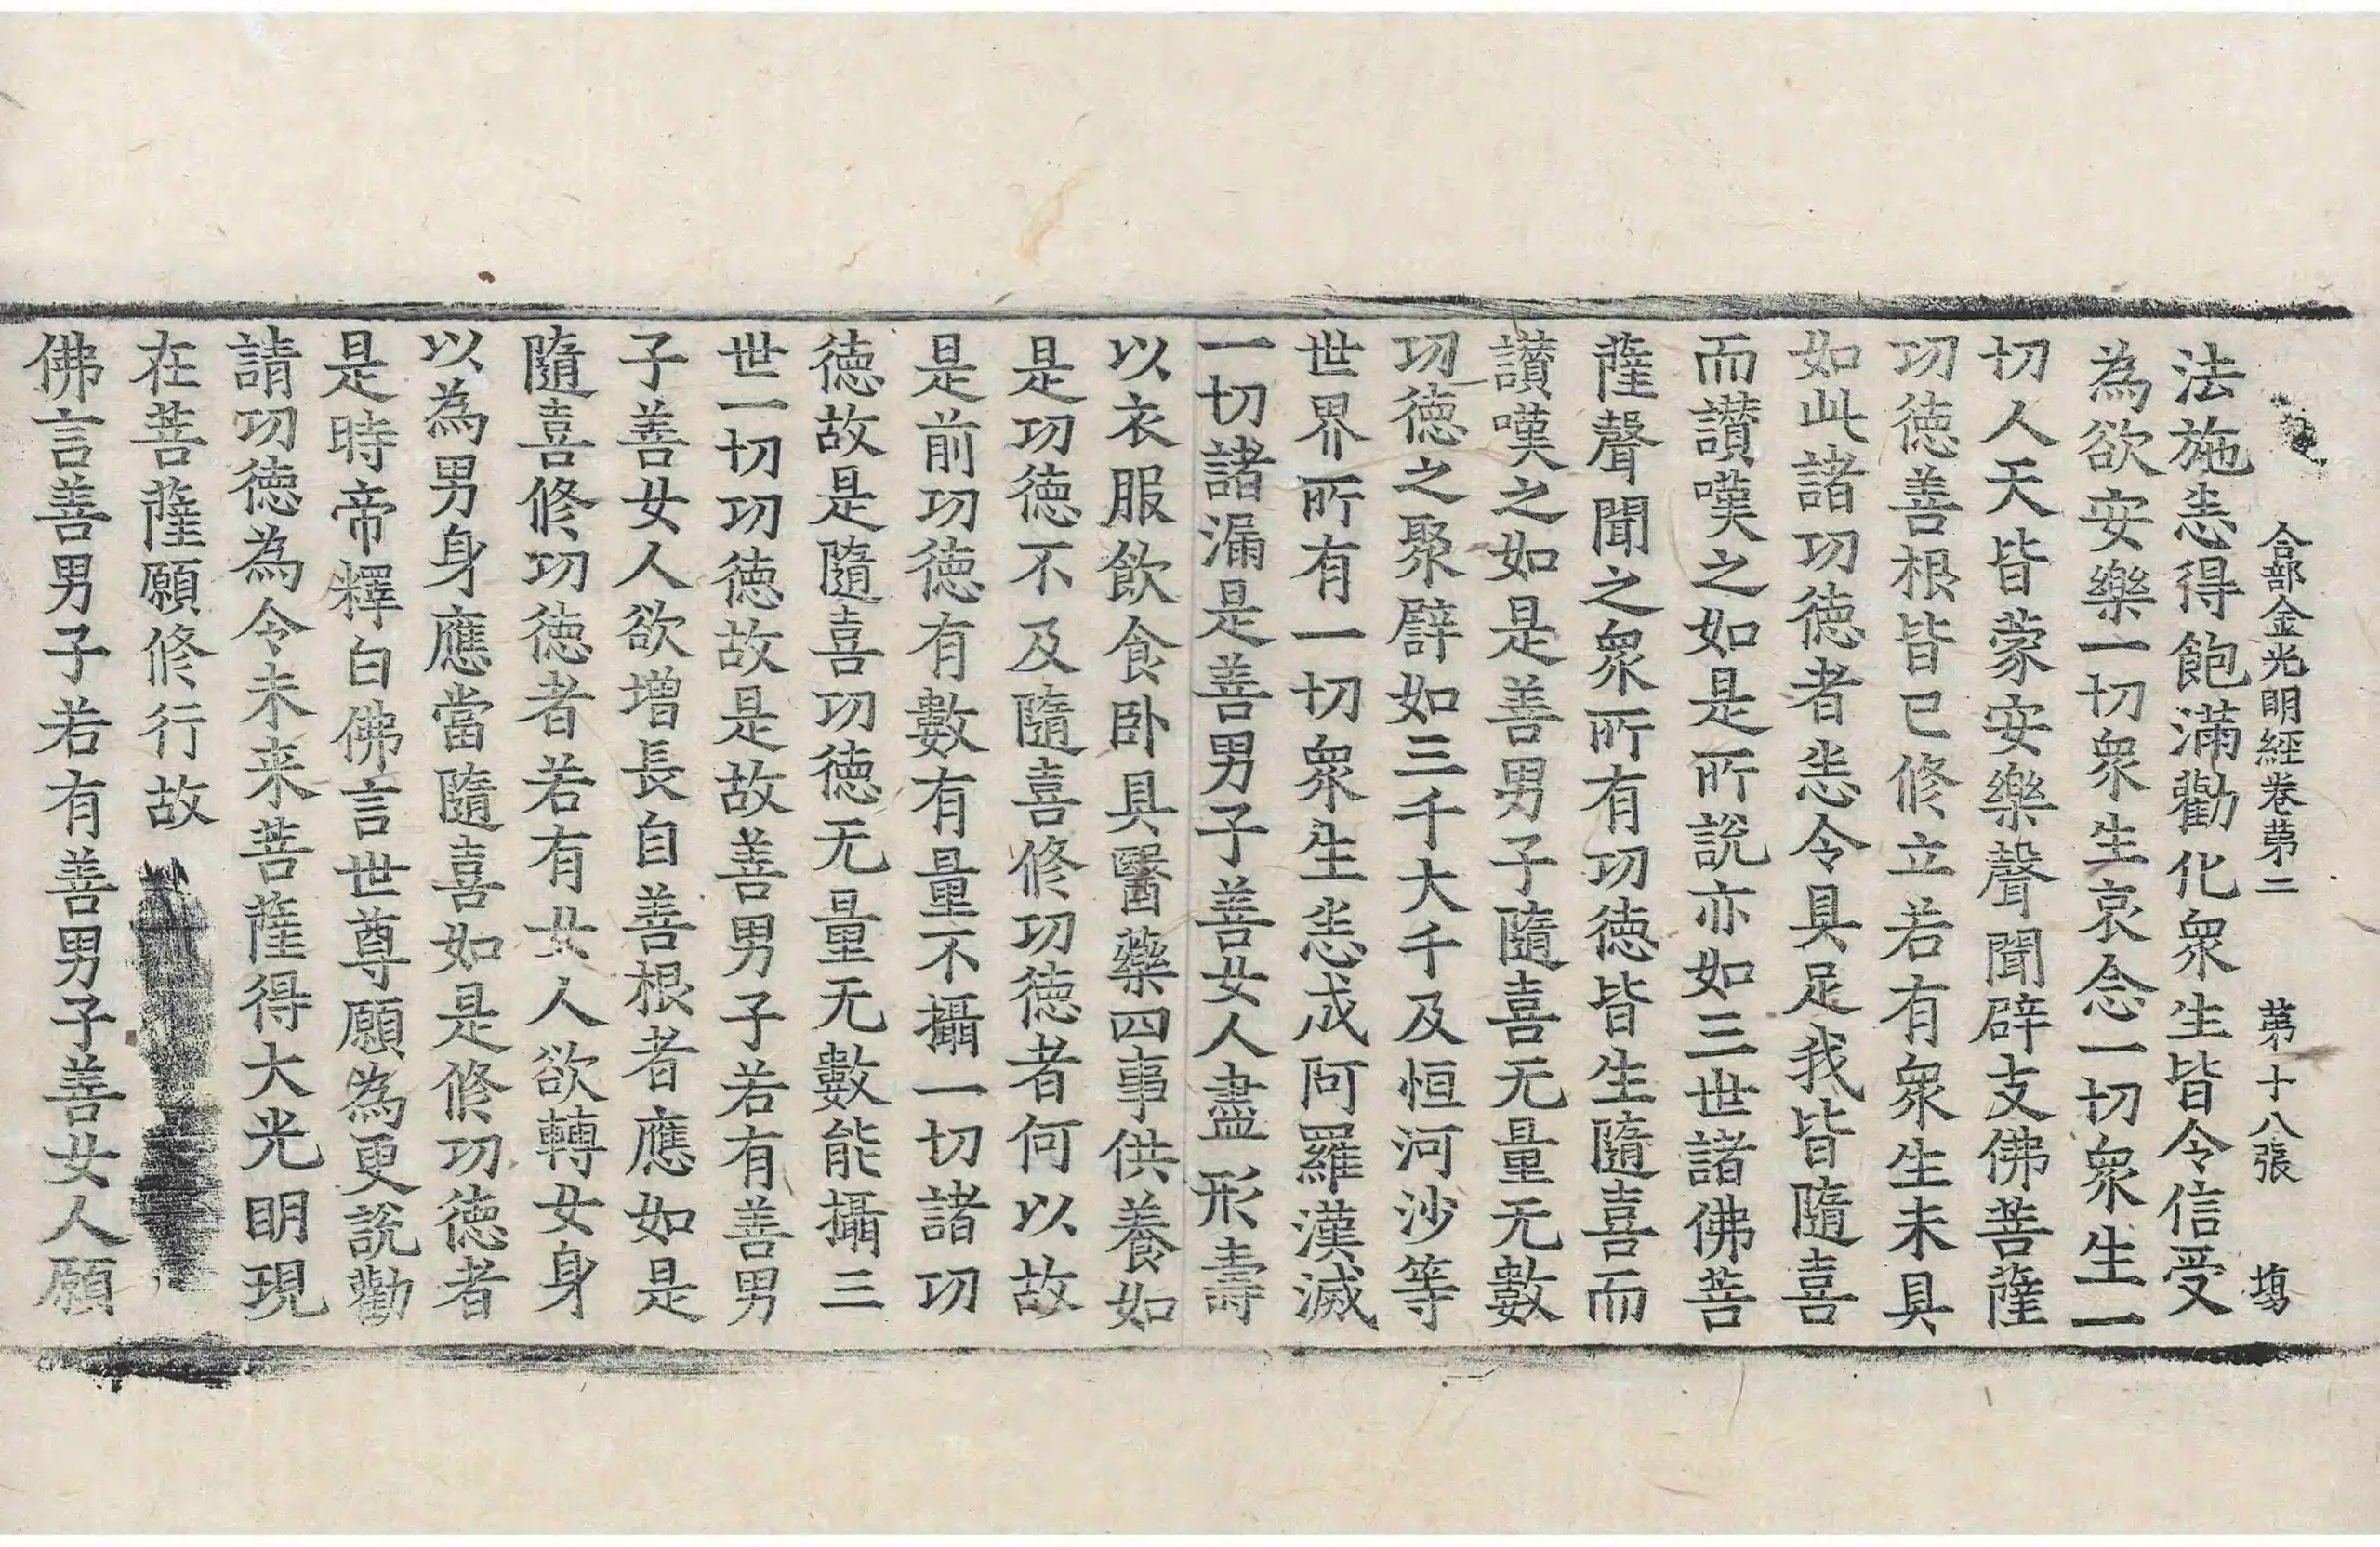 合部金光明經卷苐二　苐十八張　塲
法施恙得飽滿勸化衆生皆令信受
為欲安樂一切衆生哀念一切衆生一
切人天皆蒙安樂聲聞辟支佛菩薩
功徳善根皆已修立若有衆生未具
如此諸功徳者恙令具足我皆隨喜
而讃嘆之如是所說亦如三世諸佛菩
薩聲聞之衆所有功徳皆生隨喜而
讃嘆之如是善男子隨喜无量无數
功徳之聚辟如三千大千及恒河沙等
世界所有一切衆生恙成阿羅漢滅
一切諸漏是善男子善女人盡形壽
以衣服飲食卧具醫藥四事供養如
是功徳不及隨喜修功徳者何以故
是前功徳有數有量不攝一切諸功
徳故是隨喜功徳无量无數能攝三
世一切功徳故是故善男子若有善男
子善女人欲增長自善根者應如是
隨喜修功徳者若有女人欲轉女身
以為男身應當隨喜如是修功徳者
是時帝釋白佛言世尊願為更說勸
請功徳為令未来菩薩得大光明現
在菩薩願修行故
佛言善男子若有善男子善女人願